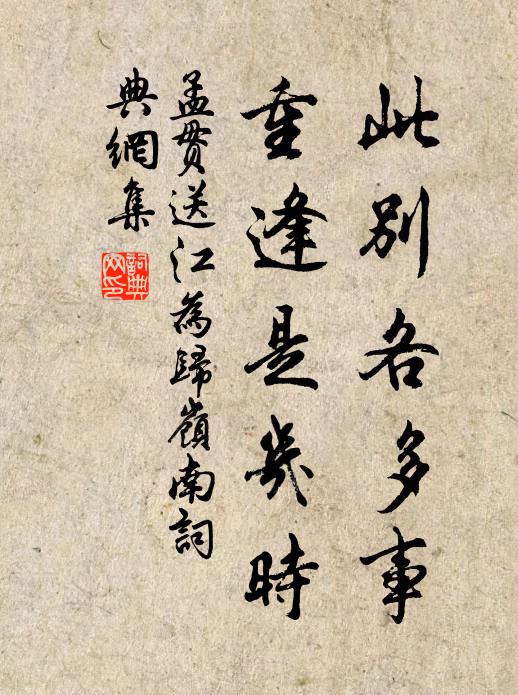 此別各多事
重逢是幾時
孟貫送江為歸嶺南詞
典網集
詞典
网印